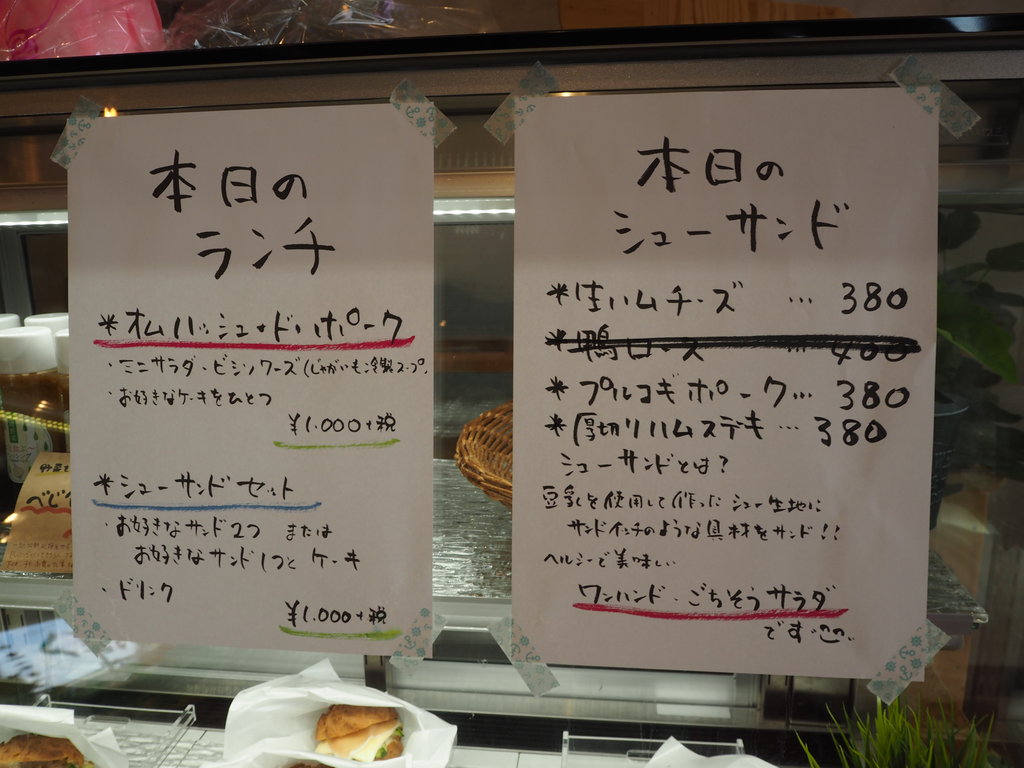 本日の
ランチ
*オムハッシュ・ド・ポーク
・ミニサラダ・ビシソワーズ(じゃがいも冷製スープ)
・お好きなケーキをひとつ
¥1.000+税
*シューサンドセット
・お好きなサンド2つ または
お好きなサンド1つと ケーキ
・ドリンク
¥1.000+税
本日の
シューサンド
*生ハムチーズ … 380
*鴨ロース … 400
*プルコギポーク… 380
*厚切りハムステーキ … 380
シューサンドとは?
豆乳を使用して作った シュー生地に
サンドイッチのような具材をサンド!!
ヘルシーで美味しい
ワンハンド・ごちそうサラダ
です